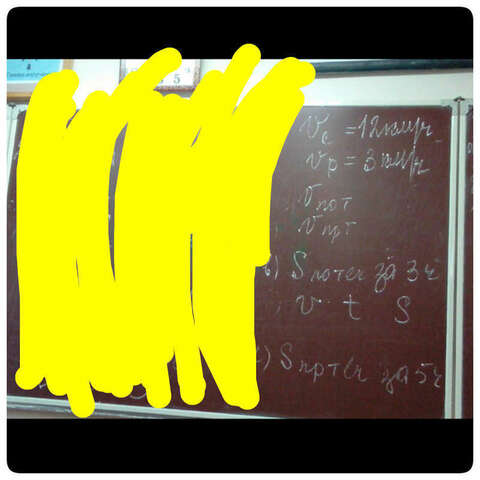 5
v с = 12 км/ч
v р = 3 км/ч
v по т
v пр т
) S по теч за 3 ч
v t S
) S пр теч за 5 ч